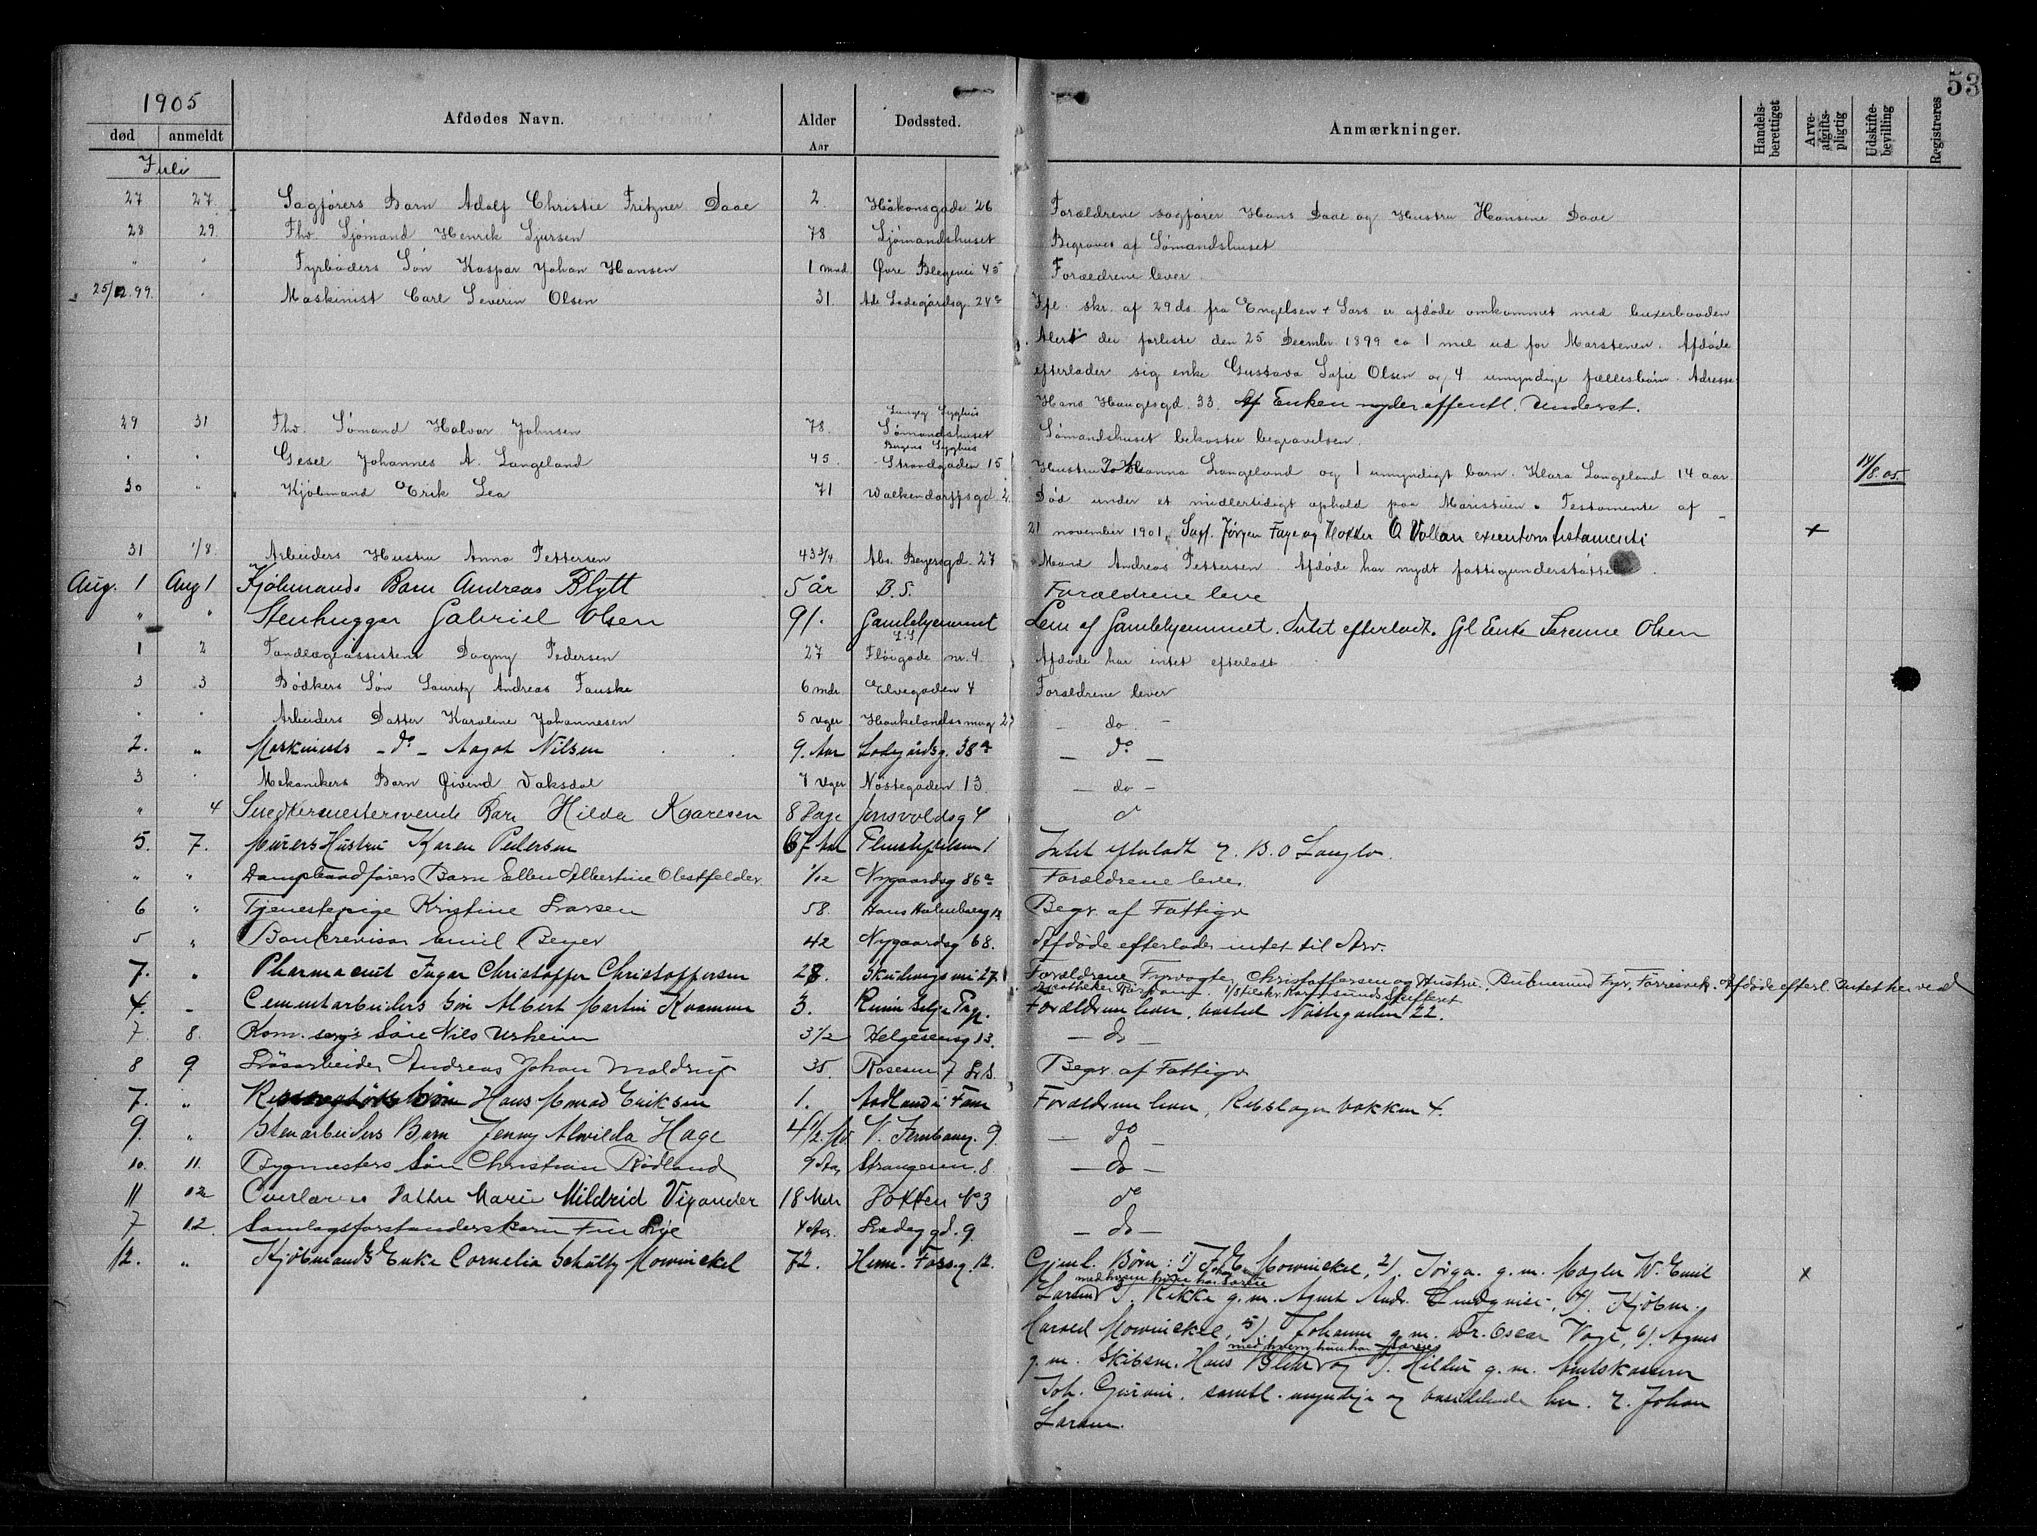 53
1905
død anmeldt Afdødes Navn. Alder Aar Dødssted. Anmærkninger. Handels-berettiget Arve-afgifts-pligtig Udskifte-bevilling Registreres
Juli
27 27. Sagførers Barn Adolf Christie Fritzner Daae 2 Håkonsgade 26 Forældrene sagfører Hans Daae og Hustru Hansine Daae
28 29. Fhv. Sjömand Henrik Sjursen 78 Sjömandshuset Begraves af Sømandshuset
" " Fyrböders Sön Kaspar Johan Hansen 1 mnd Øvre Blegevei 45 Forældrene lever
25/12.99. " Maskinist Carl Severin Olsen 31 Ade Ladegårdsg. 24a Ifl. skr. af 29 ds. fra Engelsen & Sars er afdøde omkommet med buxerbaaden
Alert der forliste den 25 December 1899 ca 1 mil ud for Marstenen. Afdøde
efterlader sig enke Gustava Sofie Olsen og 4 umyndige fællesbörn. Adresse
Hans Haugesgd. 33. Enken nyder offentl. Underst.
29 31 Fhv. Sømand Halvor Johnsen 78. Lungeg Syghus Sømandshuset Sömandshuset bekoster begravelsen.
" " Gesel Johannes A. Langeland 45. Bergens Syghus Strandgaden 15 Hustru Johanna Langeland og 1 umyndigt barn. Klara Langeland 14 aar 14/8.05.
30 " Kjöbmand Erik Lea 71 Walkendorffsgd. 2. Død under et midlertidigt ophold paa Maristuen. Testamente af
21 november 1901, Sagf. Jørgen Faye og Kokker O Vollan executores testamenti +
31 1/8 Arbeiders Hustru Anna Pettersen 43 3/4 Abs. Beyersgd. 27 Mand Andreas Pettersen. Afdøde har nydt fattigunderstøttelse.
Aug. 1 Aug 1 Kjöbmands Barn Andreas Blytt 5 år B.S. Forældrene leve
" " Stenhugger Gabriel Olsen 91. Gamlehjemmet Lem af Gamlehjemmet. Intet efterladt. Gl Enke Serenne Olsen
1 2 Tandlægeassistent Dagny Pedersen 27 L.S Fløigade nr. 4. Afdøde har intet efterladt
3 3 Bödkers Sön Lauritz Andreas Fauske 6 mdr. Elvegaden 4 Forældrene lever
" " Arbeiders Datter Karoline Johannesen 5 uger Haukelandsmug 23 — do —
2. " Maskinists - do - Aagot Nilsen 9. Aar Ladegårdsg. 38a — do —
3 " Mekanikers Barn Øivind Vaksdal 7 uger Nöstegaden 13. — do —
" 4 Snedkermestersvends Barn Hilda Kaaresen 8 Dage Jonsvoldsg 4 do
5. 7. Murers Hustru Karen Pedersen 67 Aar Pleiestiftelsen 1 Intet efterladt
" " Dampbaadførers Barn Ellen Albertine Obstfelder 1/12 Nygaardsg 86a Forældrene leve.
6 " Tjenestepige Kristine Larsen 58. Hans Holmboesg 13 Begr. af Fattigv
5 " Bankrevisor Emil Beyer 42 Nygaardsg 68. Afdøde efterlader intet til Arv.
7. " Pharmaceut Ingar Christoffer Christoffersen 28. 27 Forældrene Fyrvogter Christoffersen og Hustru Fyr, Førresvik. Afdöde efterl. Intet her ved
Apotheker
4. - Cementarbeiders Sön Albert Martin Rasmus 3. Forældrene lever, bosted Nöstegaden 22.
7 8. Kom. Søn Nils Urheim 3 1/2 Helgesensg 13. — do —
8 9 Løsarbeider Andreas Johan Moldrup 35 7 L.S. Begr. af Fattigv
7. " Sön Hans Konrad Eriksen 1. Aadland i Fane Forældrene lever, Rebslager bakken 4.
9. " Stenarbeiders Barn Jenny Alvilda Hage 4 1/2 Md. V. 9. — do —
10. 11. Bygmesters Søn Christian Rødland 9 Aar Strangeveien 8. — do —
11 12 Overlærers Datter Marie Mildrid Vigander 18 Mdr Dokken No 3 do
7 12. Samlagsforstanders barn Finn Lie 4 Aar. 9 — do —
12. " Kjöbmands Enke Cornelia Schultz Mowinckel 72. Herm. Fossg. 12. Gjenl. Børn: 1) Joh E Mowinckel, 2). g. m. Mægler W. Emil x
Larsen med hvem hun har Børn g. m. Agent Andr. Lindqvist, 4) Kjöbm.
Harald Mowinckel, 5) Johanne g. m. Dr. Oscar Vogt, 6). Agnes
g. m. Skibsm. Hans og 7. Hilda g. m. Amtskasserer
Joh. samtl. myndige og bosiddende her. v. Johan
Larsen.